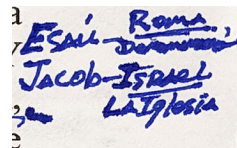 Esaú - Roma
Jacob - Israel
La Iglesia